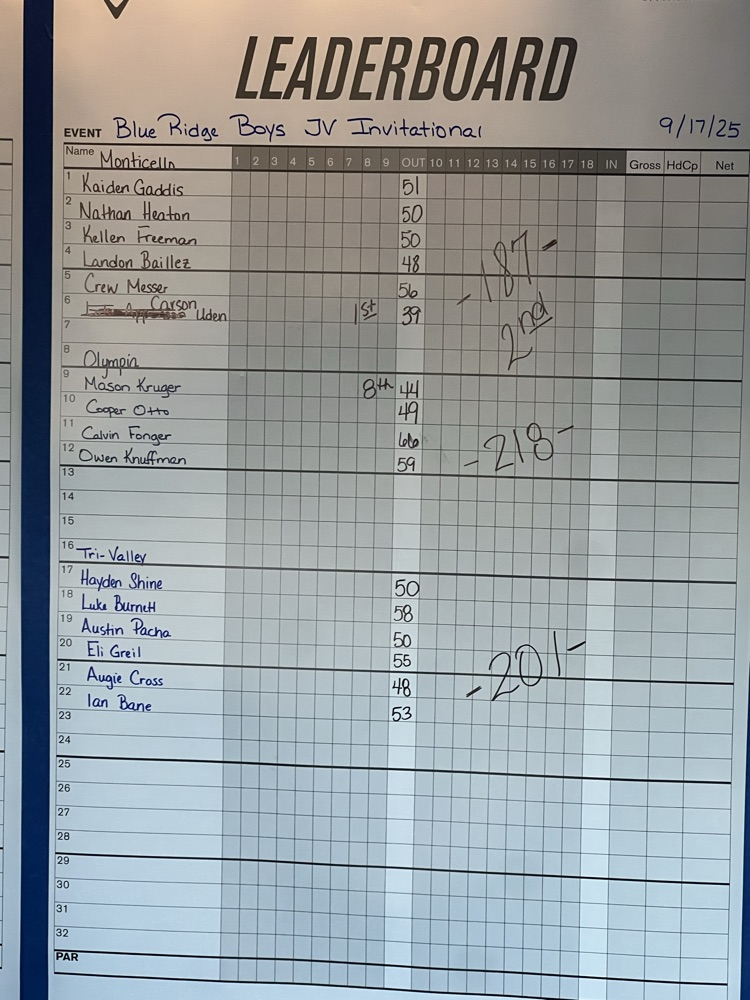 LEADERBOARD
EVENT Blue Ridge Boys JV Invitational 9/17/25
Name Monticello 1 2 3 4 5 6 7 8 9 OUT 10 11 12 13 14 15 16 17 18 IN Gross HdCp Net
1 Kaiden Gaddis 51
2 Nathan Heaton 50
3 Kellen Freeman 50
4 Landon Baillez 48
5 Crew Messer 56
-187-
6 Carson Uden 1st 39
2nd
7
8 Olympia
9 Mason Kruger 8th 44
10 Cooper Otto 49
11 Calvin Fonger 66
12 Owen Knuffman 59
-218-
13
14
15
16 Tri-Valley
17 Hayden Shine 50
18 Luke Burnett 58
19 Austin Pacha 50
20 Eli Greil 55
21 Augie Cross 48
-201-
22 Ian Bane 53
23
24
25
26
27
28
29
30
31
32
PAR